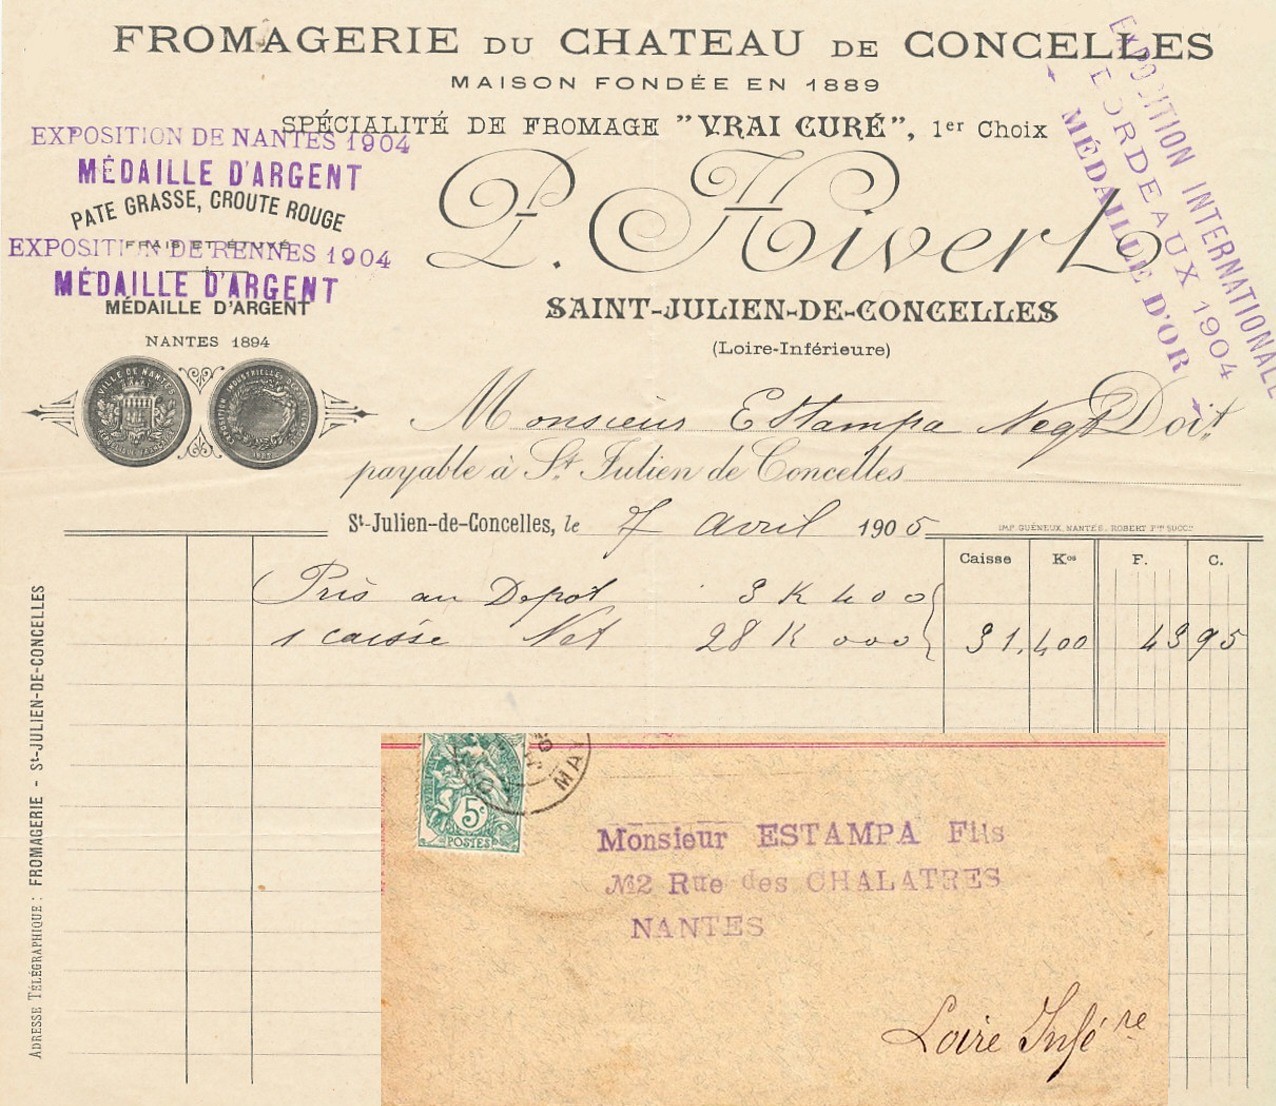 FROMAGERIE DU CHATEAU DE CONCELLES
MAISON FONDÉE EN 1889
SPÉCIALITÉ DE FROMAGE "VRAI CURÉ", 1er Choix
EXPOSITION DE NANTES 1904
MÉDAILLE D'ARGENT
PATE GRASSE, CROUTE ROUGE
FRAIS ET ÉTUVÉ
EXPOSITION DE RENNES 1904
MÉDAILLE D'ARGENT
MÉDAILLE D'ARGENT
NANTES 1894
VILLE DE NANTES
EXPOSITION INTERNATIONALE
BORDEAUX 1904
MÉDAILLE D'OR
P. Hivert
SAINT-JULIEN-DE-CONCELLES
(Loire-Inférieure)
Monsieur Estampa Negt Doit
payable à St. Julien de Concelles
St-Julien-de-Concelles, le 7 Avril 1905
IMP. GUÉNEUX, NANTES. ROBERT Fres SUCCrs
Caisse Kos F. C.
Pris au Depot 3 K 400
1 caisse Net 28 K 000 31,400 43 95
ADRESSE TÉLÉGRAPHIQUE : FROMAGERIE - St-JULIEN-DE-CONCELLES
5c
POSTES
MA
Monsieur ESTAMPA Fils
No2 Rue des CHALATRES
NANTES
Loire Infére